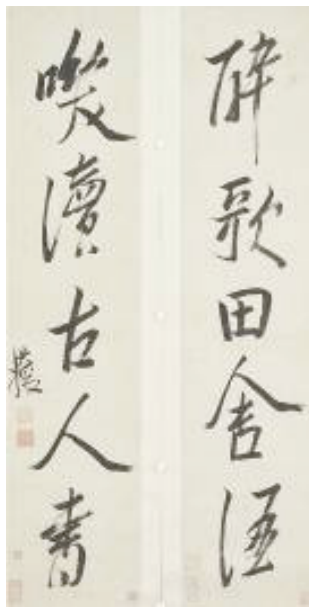 醉歌田舍酒
咲讀古人書